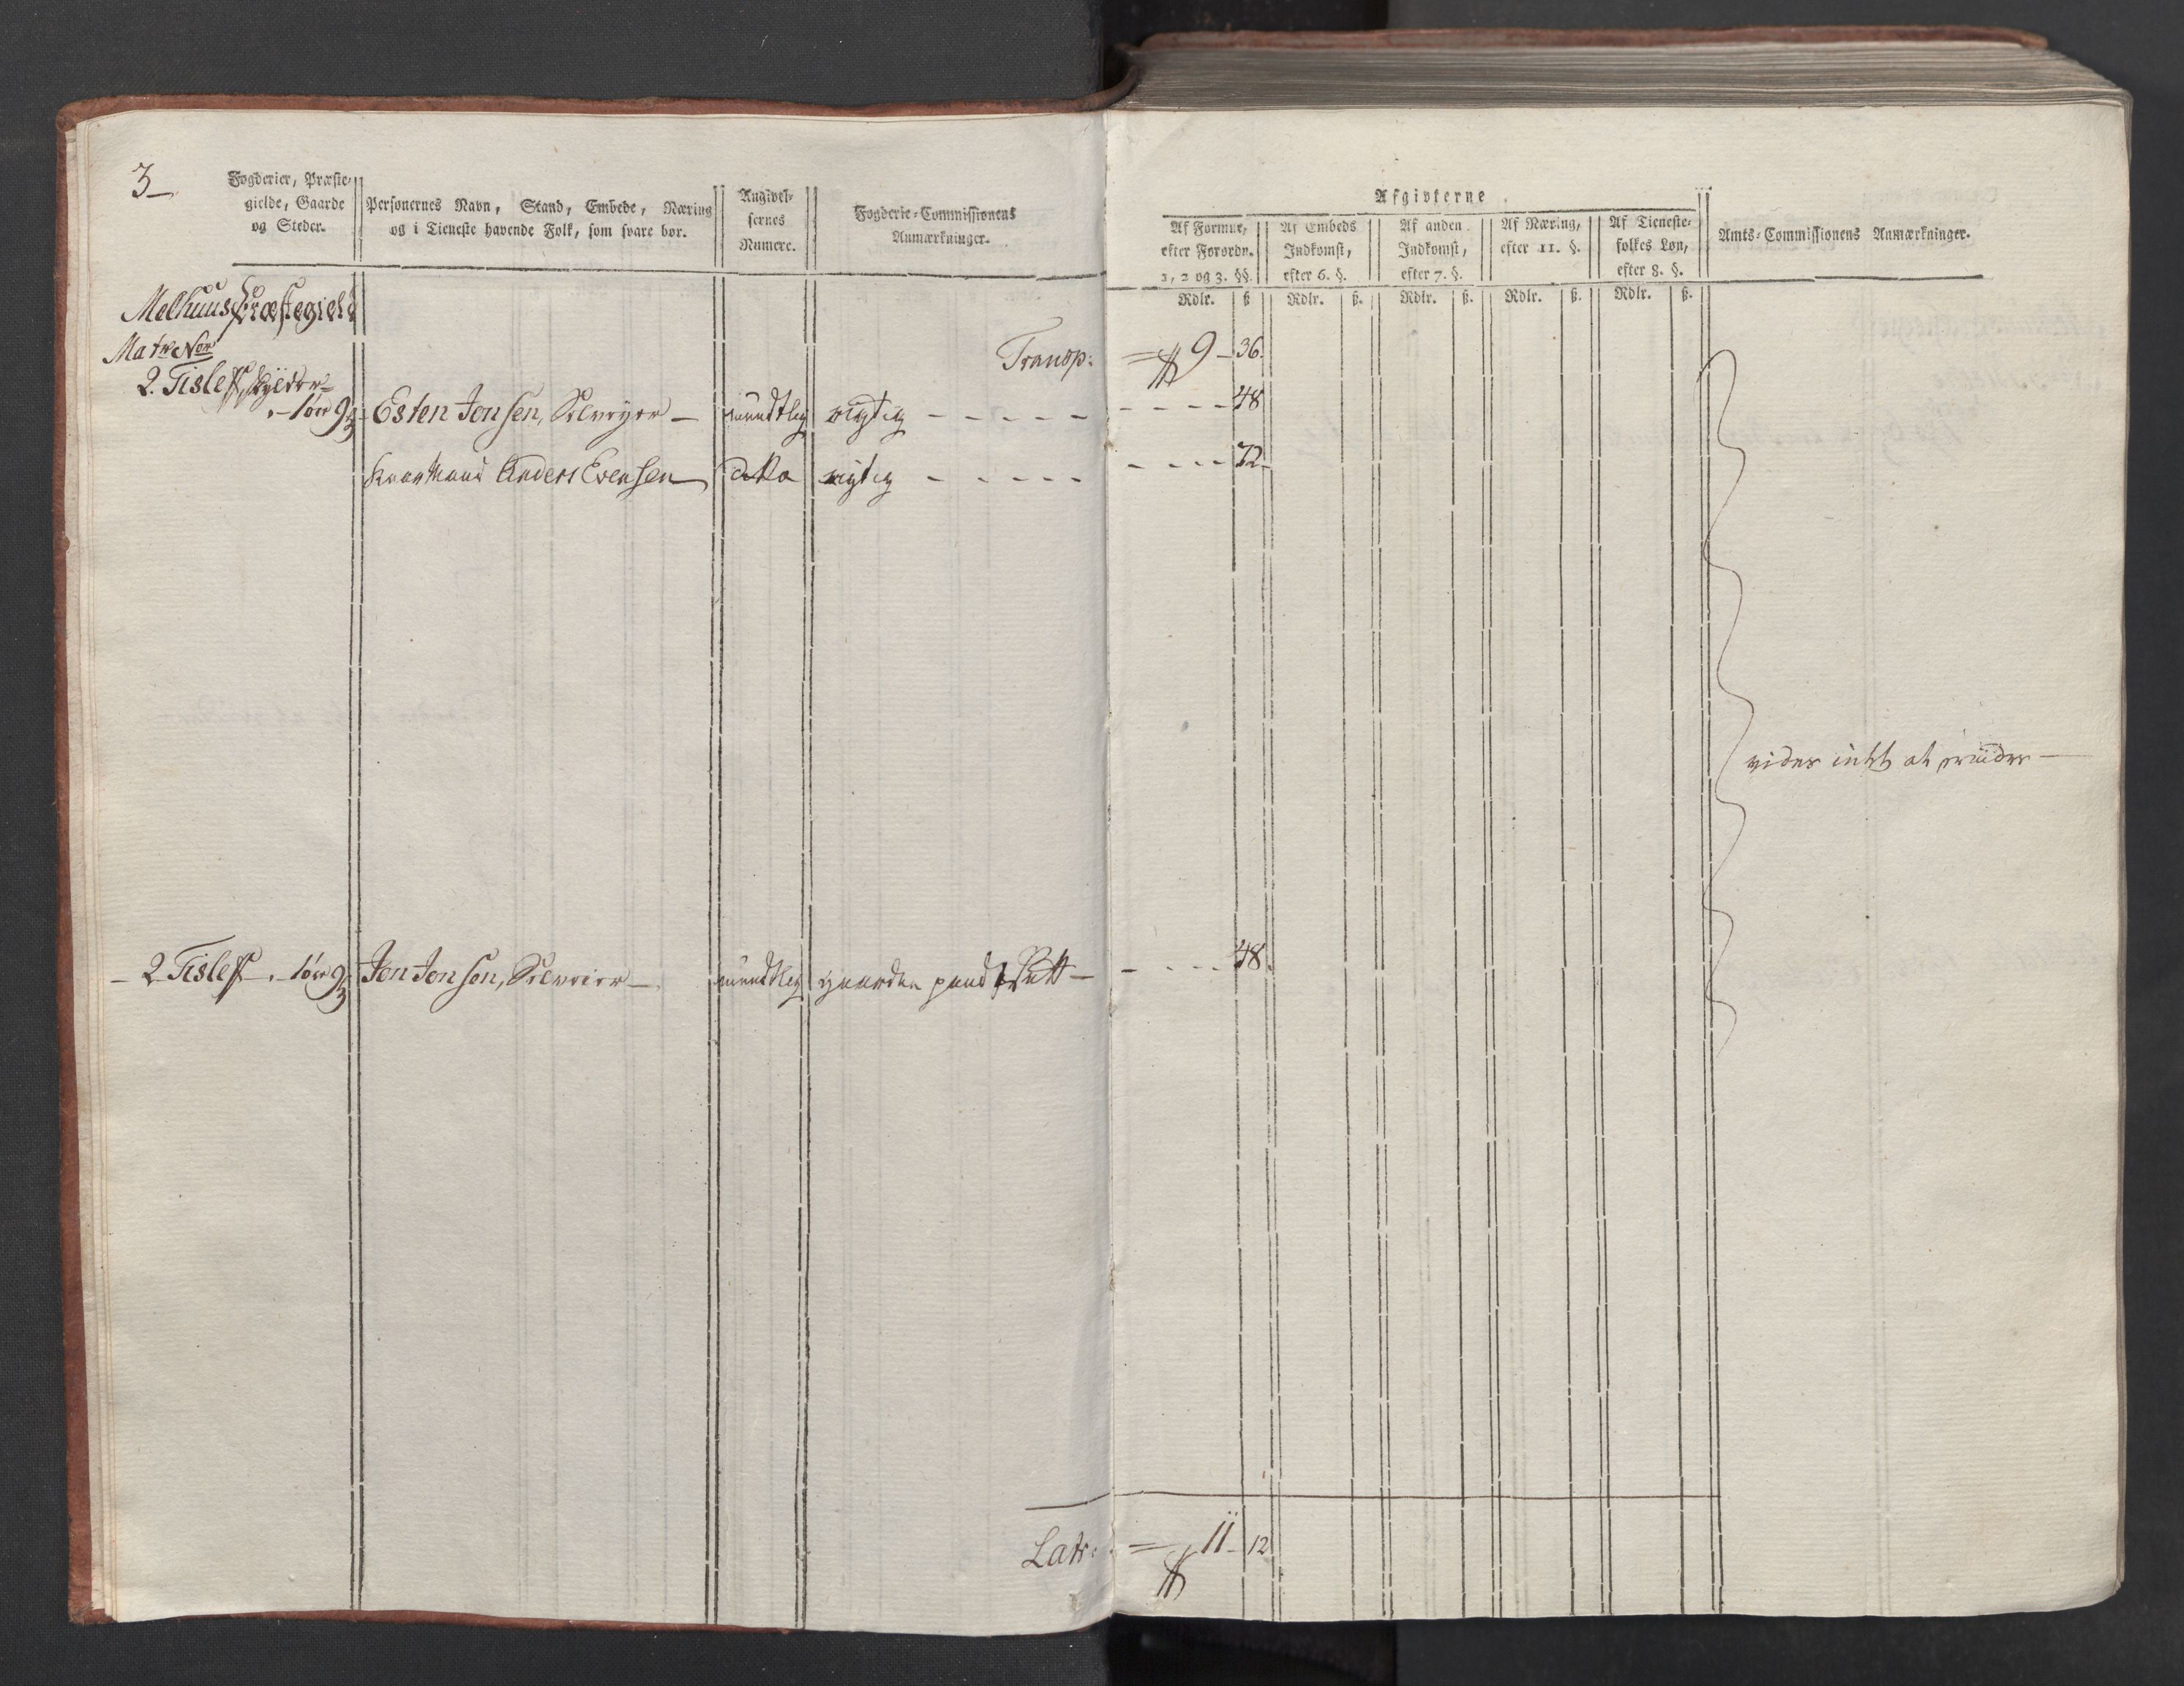 3
Fogderier, Præste-
gielde, Gaarde
og Steder.
Personernes Navn, Stand, Embede, Næring
og i Tieneste havende Folk, som svare bør.
Angivel-
sernes
Numere.
Fogderie-Commissionens
Anmærkninger.
Afgivterne
Af Formue,
efter Forordn.
1, 2 og 3. §§.
Af Embeds
Indkomst,
efter 6. §.
Af anden
Indkomst,
efter 7. §.
Af Næring,
efter 11. §.
Af Tieneste-
folkes Løn,
efter 8. §.
Amts-Commissionens Anmærkninger.
Rdlr. ß Rdlr. ß. Rdlr. ß. Rdlr. ß. Rdlr. ß.
Melhuus Præstegield
Matr Nor
Transp: 9 - 36.
2. Tislef, skylder
1 ør 9 Esten Jonsen, mundtlig rigtig - - - - - 48
Kaarmand Anders Evensen ditto rigtig - - - - - 72
vides intet at erindre
2 Tislef 1 ør 9 Jon Jonsen, mundtlig gaarden pandsatt - 48
Latr: = 11 - 12